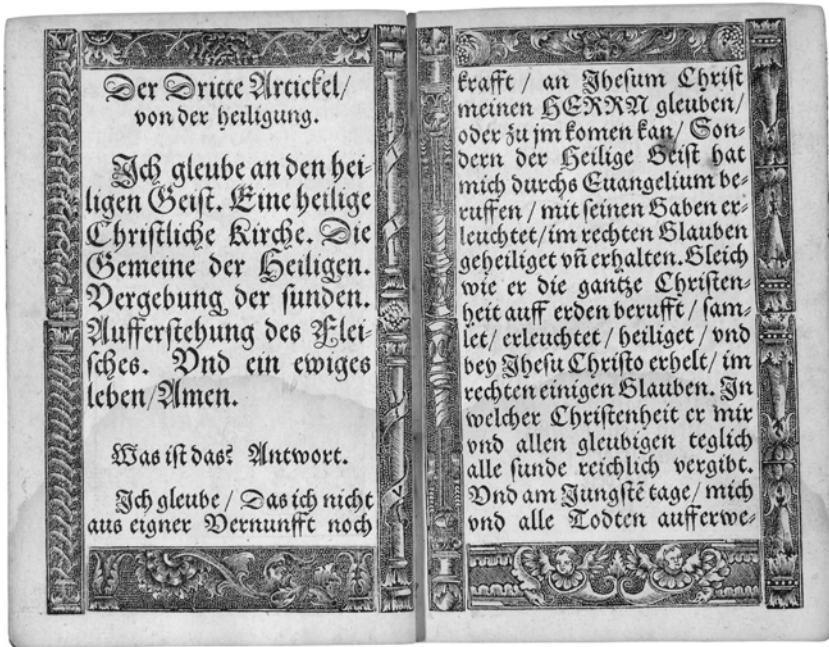 Der Dritte Artickel/
von der heiligung.
Ich gleube an den hei-
ligen Geist. Eine heilige
Christliche Kirche. Die
Gemeine der Heiligen.
Vergebung der sunden.
Aufferstehung des Flei-
sches. Vnd ein ewiges
leben/Amen.
Was ist das? Antwort.
Ich gleube / Das ich nicht
aus eigner Vernunfft noch
krafft / an Jhesum Christ
meinen HERRN gleuben/
oder zu jm komen kan/ Son-
dern der Heilige Geist hat
mich durchs Euangelium be-
ruffen / mit seinen Gaben er-
leuchtet/im rechten Glauben
geheiliget vñ erhalten. Gleich
wie er die gantze Christen-
heit auff erden berufft / sam-
let/ erleuchtet / heiliget / vnd
bey Jhesu Christo erhelt/ im
rechten einigen Glauben. In
welcher Christenheit er mir
vnd allen gleubigen teglich
alle sunde reichlich vergibt.
Vnd am Jungstẽ tage/ mich
vnd alle Todten aufferwe-